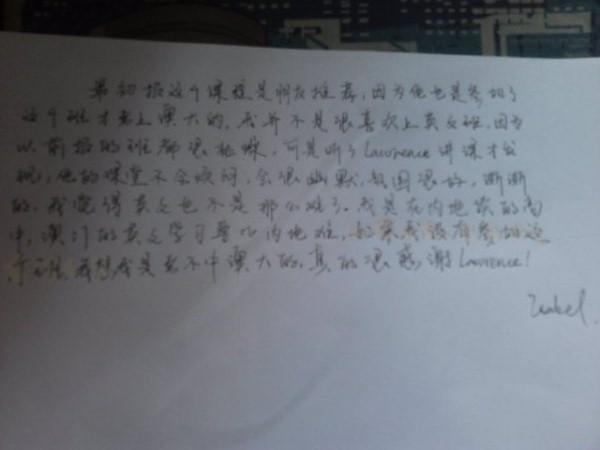 最初报这个课程是朋友推荐，因为他也是参加了
这个班才考上澳大的。我并不是很喜欢上英文班，因为
以前报的班都很枯燥，可是听了Lawrence讲课才发
现，他的课堂不会沉闷，会很幽默，氛围很好，渐渐
的，我觉得英文也不是那么难了。我是在内地读的高
中，澳门的英文学习要比内地难，如果我没有参加这
个班，我想我是考不中澳大的，真的很感谢Lawrence！
Isabel.